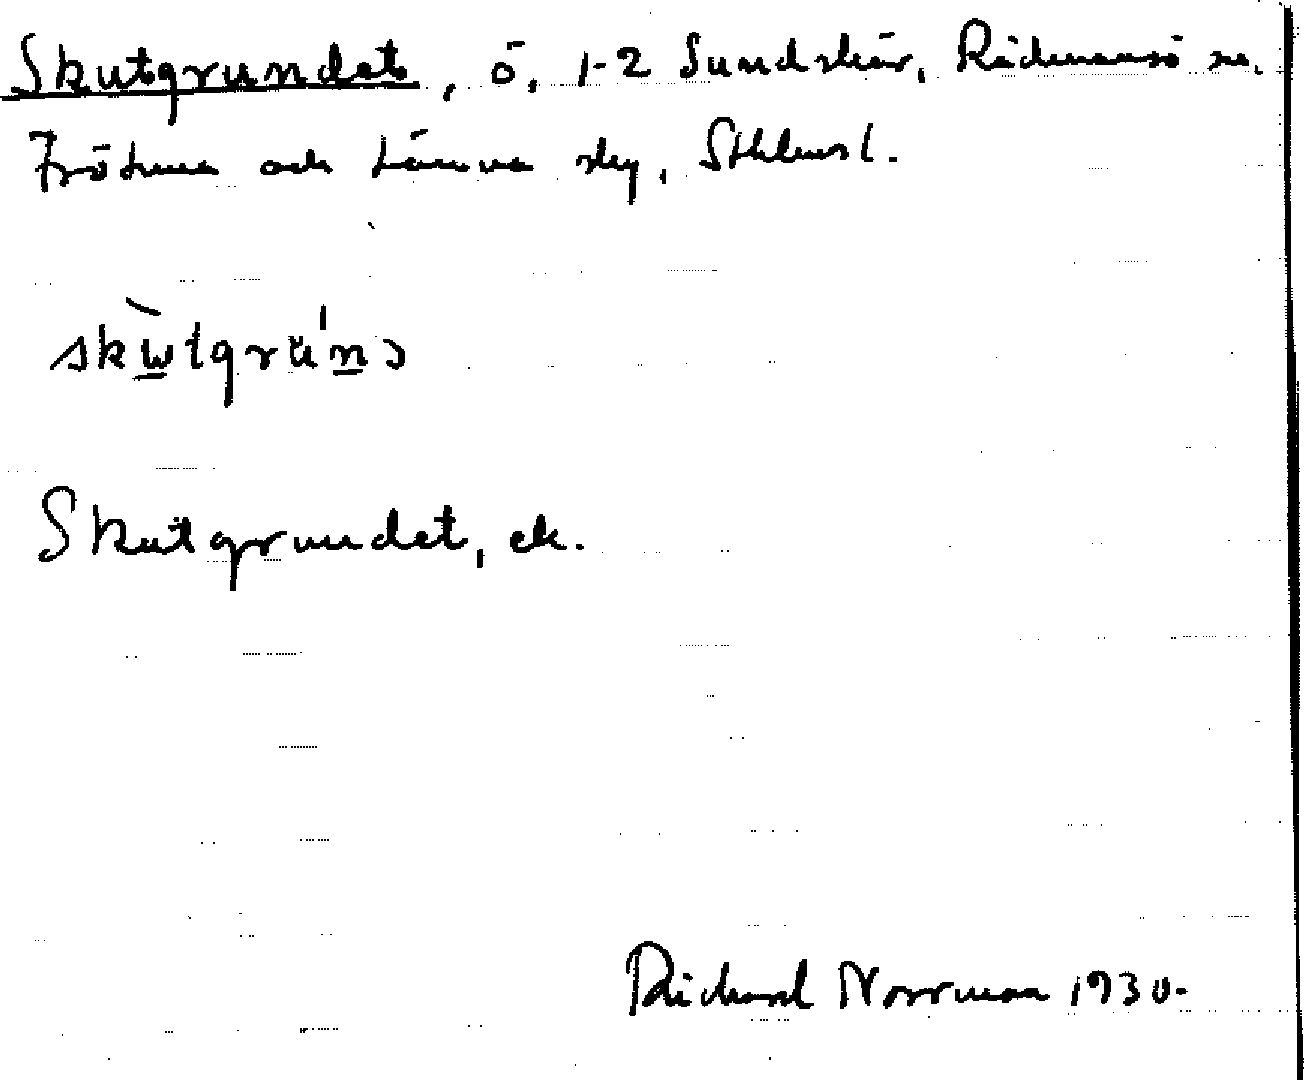 Skutgrundet, ö, 1-2 Sundskär, Rådmansö sn.
Frötuna och Länna skg, Sthlms l.
skẁtgru̇́nə
Skutgrundet, ek.
Richard Norrman 1930.